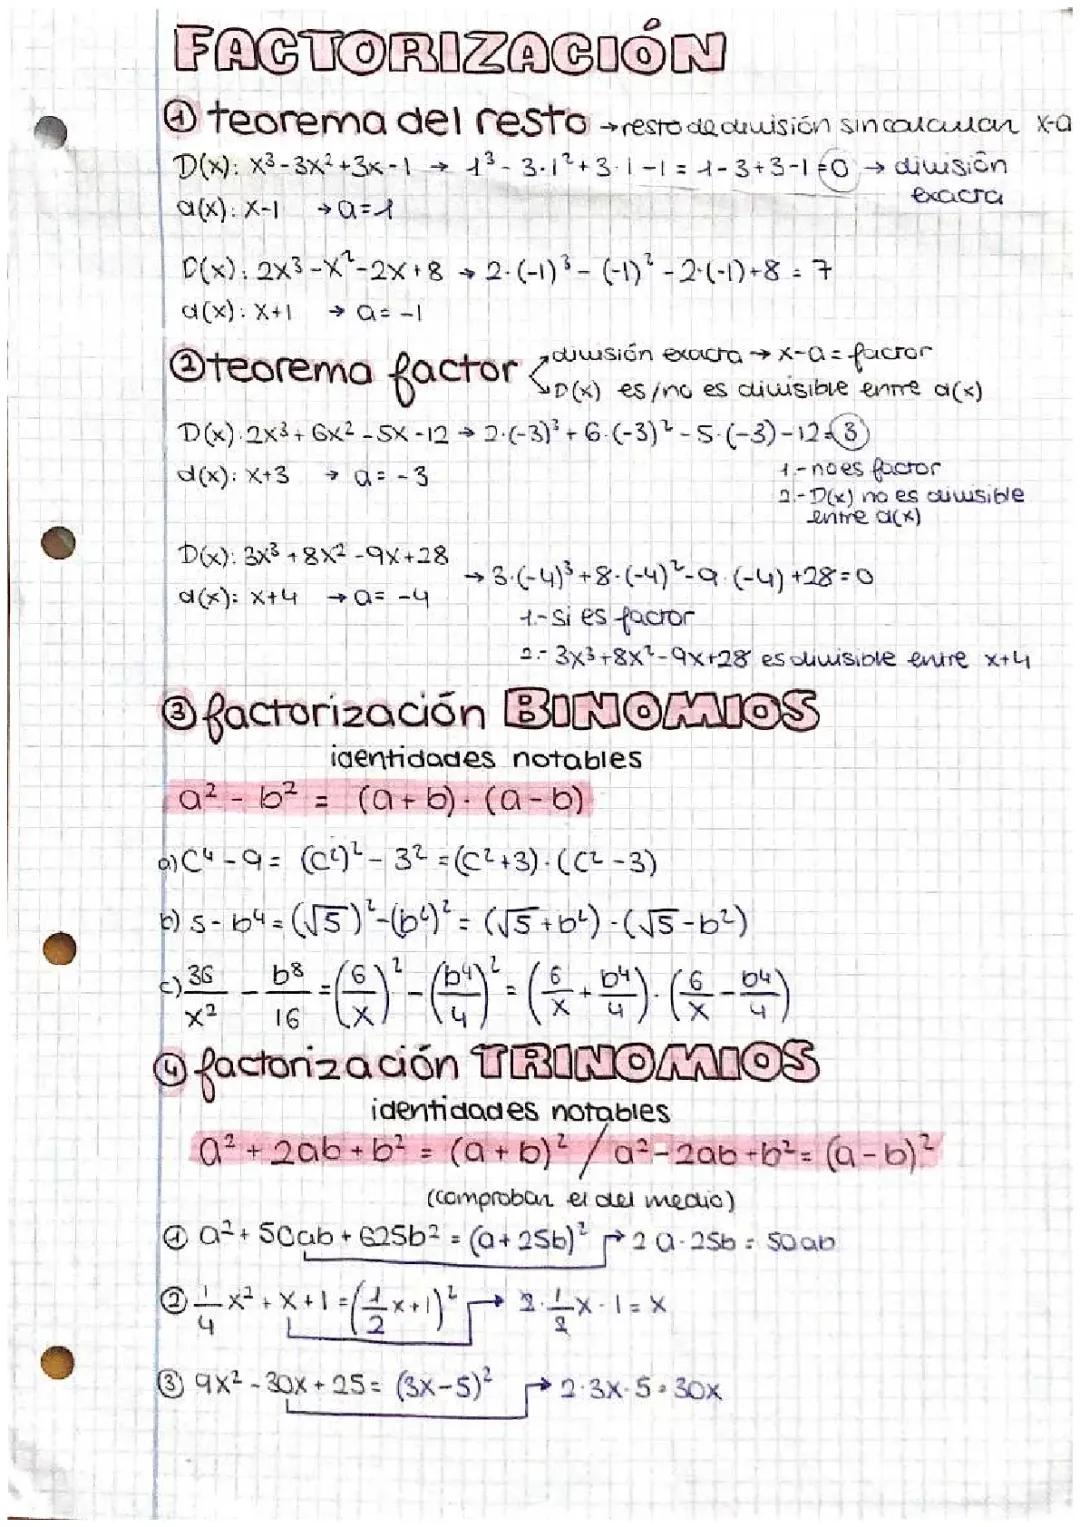 FACTORIZACIÓN
① teorema del resto → resto de división sin calcular x-a
D(x): x³-3x²+3x-1 → 1³-3·1²+3·1-1=1-3+3-1=0 → división
exacta
d(x): x-1 → a=1
D(x): 2x³-x²-2x+8 → 2·(-1)³-(-1)²-2·(-1)+8=7
d(x): x+1 → a=-1
② teorema factor → división exacta → x-a=factor
→ D(x) es/no es divisible entre d(x)
D(x): 2x³+6x²-5x-12 → 2·(-3)³+6·(-3)²-5·(-3)-12=3
d(x): x+3 → a=-3
1.-no es factor
2.-D(x) no es divisible
entre d(x)
D(x): 3x³+8x²-9x+28
→ 3·(-4)³+8·(-4)²-9·(-4)+28=0
d(x): x+4 → a=-4
1.-si es factor
2.- 3x³+8x²-9x+28 es divisible entre x+4
③ factorización BINOMIOS
identidades notables
a² - b² = (a+b)·(a-b)
a) c⁴-9=(c²)²-3²=(c²+3)·(c²-3)
b) 5-b⁴=(√5)²-(b²)²=(√5+b²)·(√5-b²)
c) 36/x² - b⁸/16 = (6/x)²-(b⁴/4)²=(6/x+b⁴/4)·(6/x-b⁴/4)
④ factorización TRINOMIOS
identidades notables
a²+2ab+b²=(a+b)² / a²-2ab+b²=(a-b)²
(comprobar el del medio)
① a²+50ab+625b²=(a+25b)² → 2a·25b=50ab
② 1/4x²+x+1=(1/2x+1)² → 2·1/2x·1=x
③ 9x²-30x+25=(3x-5)² → 2·3x·5=30x